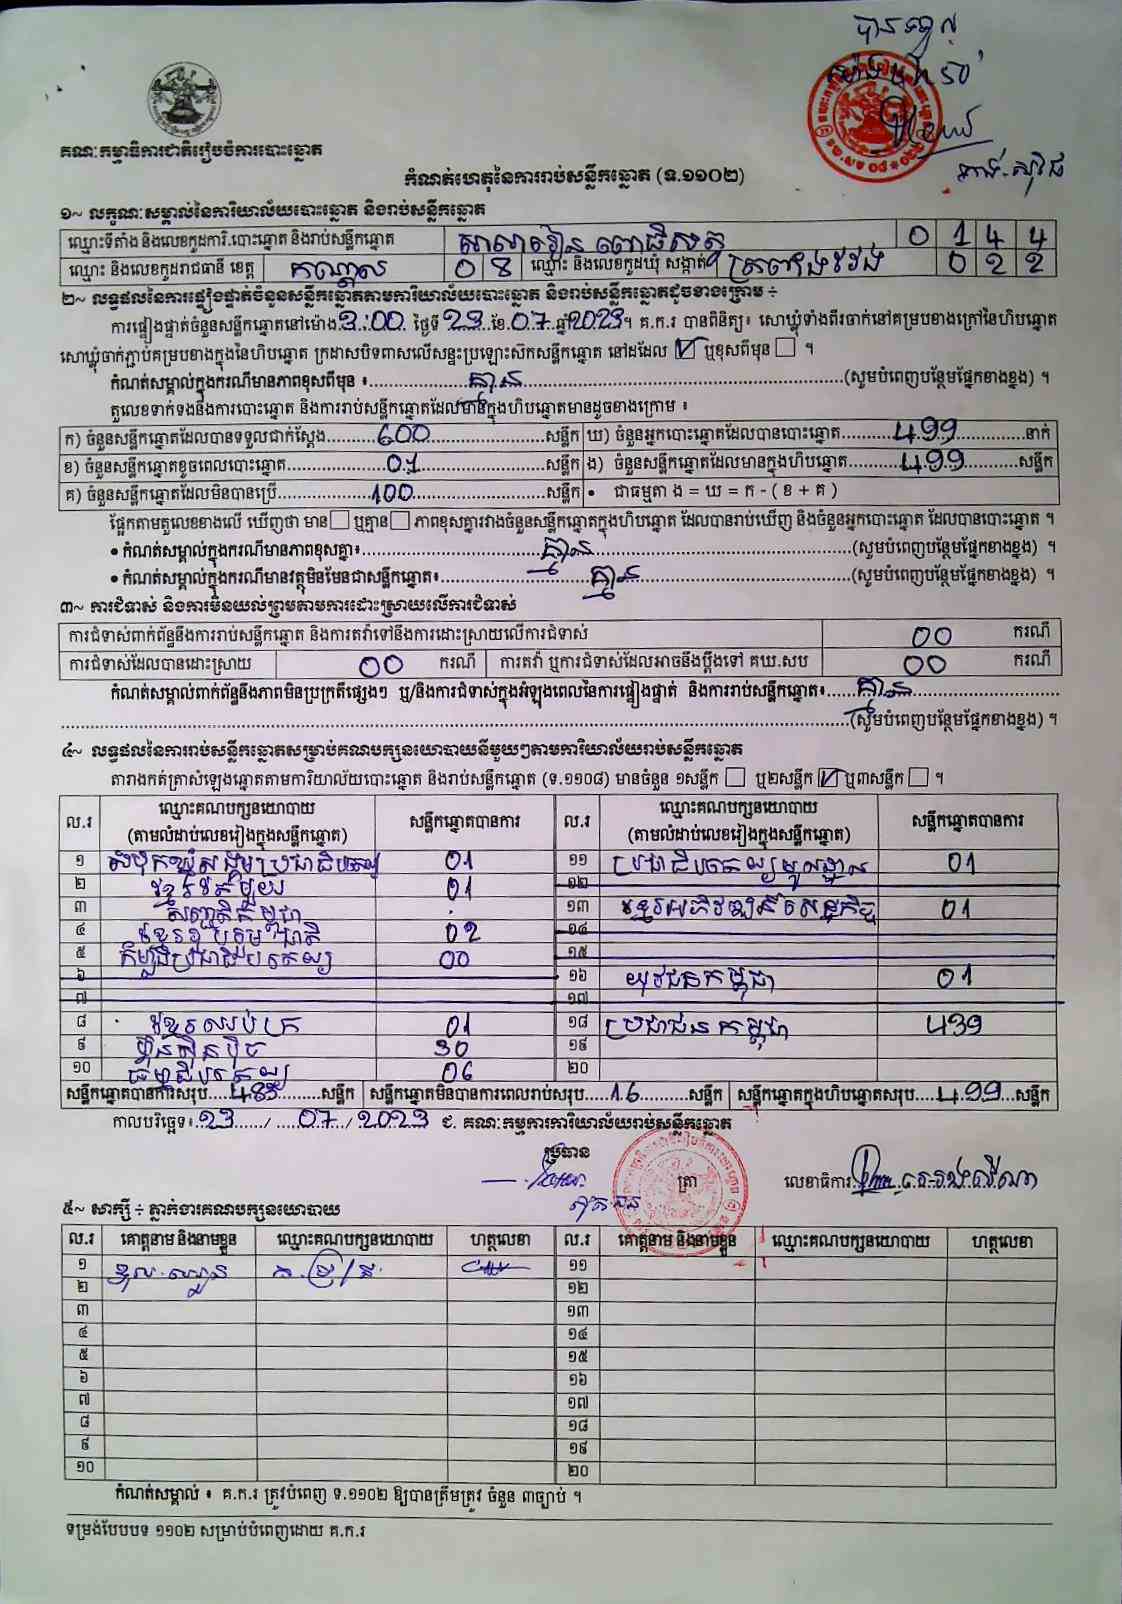 គណៈកម្មាធិការជាតិរៀបចំការបោះឆ្នោត
កំណត់ហេតុនៃការរាប់សន្លឹកឆ្នោត (ទ.១១០២)
១~ លក្ខណៈសម្គាល់នៃការិយាល័យបោះឆ្នោត និងរាប់សន្លឹកឆ្នោត
ឈ្មោះទីតាំង និងលេខកូដការិ.បោះឆ្នោត និងរាប់សន្លឹកឆ្នោត សាលារៀន ពោធិសត្វ 0 1 4 4
ឈ្មោះ និងលេខកូដរាជធានី ខេត្ត កណ្តាល 0 8 ឈ្មោះ និងលេខកូដឃុំ សង្កាត់ ត្រពាំងវែង 0 2 2
២~ លទ្ធផលនៃការផ្ទៀងផ្ទាត់ចំនួនសន្លឹកឆ្នោតតាមការិយាល័យបោះឆ្នោត និងរាប់សន្លឹកឆ្នោតដូចខាងក្រោម ÷
ការផ្ទៀងផ្ទាត់ចំនួនសន្លឹកឆ្នោតនៅម៉ោង 3:00 ថ្ងៃទី 23 ខែ 07 ឆ្នាំ 2023 ។ គ.ក.រ បានពិនិត្យ៖ សោឃ្លុំទាំងពីរចាក់នៅគម្របខាងក្រៅនៃហិបឆ្នោត
សោឃ្លុំចាក់ភ្ជាប់គម្របខាងក្នុងនៃហិបឆ្នោត ក្រដាសបិទពាសលើសន្ទះប្រឡោះស៊កសន្លឹកឆ្នោត នៅដដែល ☑ ឬខុសពីមុន ☐ ។
កំណត់សម្គាល់ក្នុងករណីមានភាពខុសពីមុន ៖ គ្មាន (សូមបំពេញបន្ថែមផ្នែកខាងខ្នង) ។
តួលេខទាក់ទងនឹងការបោះឆ្នោត និងការរាប់សន្លឹកឆ្នោតដែលមានក្នុងហិបឆ្នោតមានដូចខាងក្រោម ៖
ក) ចំនួនសន្លឹកឆ្នោតដែលបានទទួលជាក់ស្តែង 600 សន្លឹក ឃ) ចំនួនអ្នកបោះឆ្នោតដែលបានបោះឆ្នោត 499 នាក់
ខ) ចំនួនសន្លឹកឆ្នោតខូចពេលបោះឆ្នោត 01 សន្លឹក ង) ចំនួនសន្លឹកឆ្នោតដែលមានក្នុងហិបឆ្នោត 499 សន្លឹក
គ) ចំនួនសន្លឹកឆ្នោតដែលមិនបានប្រើ 100 សន្លឹក • ជាធម្មតា ង = ឃ = ក - ( ខ + គ )
ផ្អែកតាមតួលេខខាងលើ ឃើញថា មាន ☐ ឬគ្មាន ☐ ភាពខុសគ្នារវាងចំនួនសន្លឹកឆ្នោតក្នុងហិបឆ្នោត ដែលបានរាប់ឃើញ និងចំនួនអ្នកបោះឆ្នោត ដែលបានបោះឆ្នោត ។
• កំណត់សម្គាល់ក្នុងករណីមានភាពខុសគ្នា៖ គ្មាន (សូមបំពេញបន្ថែមផ្នែកខាងខ្នង) ។
• កំណត់សម្គាល់ក្នុងករណីមានវត្ថុមិនមែនជាសន្លឹកឆ្នោត៖ គ្មាន (សូមបំពេញបន្ថែមផ្នែកខាងខ្នង) ។
៣~ ការជំទាស់ និងការមិនយល់ព្រមតាមការដោះស្រាយលើការជំទាស់
ការជំទាស់ពាក់ព័ន្ធនឹងការរាប់សន្លឹកឆ្នោត និងការតវ៉ាទៅនឹងការដោះស្រាយលើការជំទាស់ 00 ករណី
ការជំទាស់ដែលបានដោះស្រាយ 00 ករណី ការតវ៉ា ឬការជំទាស់ដែលអាចនឹងប្តឹងទៅ គឃ.សប 00 ករណី
កំណត់សម្គាល់ពាក់ព័ន្ធនឹងភាពមិនប្រក្រតីផ្សេងៗ ឬ/និងការជំទាស់ក្នុងអំឡុងពេលនៃការផ្ទៀងផ្ទាត់ និងការរាប់សន្លឹកឆ្នោត៖ គ្មាន
(សូមបំពេញបន្ថែមផ្នែកខាងខ្នង) ។
៤~ លទ្ធផលនៃការរាប់សន្លឹកឆ្នោតសម្រាប់គណបក្សនយោបាយនីមួយៗតាមការិយាល័យរាប់សន្លឹកឆ្នោត
តារាងកត់ត្រាសំឡេងឆ្នោតតាមការិយាល័យបោះឆ្នោត និងរាប់សន្លឹកឆ្នោត (ទ.១១០៨) មានចំនួន ១សន្លឹក ☐ ឬ២សន្លឹក ☑ ឬ៣សន្លឹក ☐ ។
ល.រ ឈ្មោះគណបក្សនយោបាយ (តាមលំដាប់លេខរៀងក្នុងសន្លឹកឆ្នោត) សន្លឹកឆ្នោតបានការ ល.រ ឈ្មោះគណបក្សនយោបាយ (តាមលំដាប់លេខរៀងក្នុងសន្លឹកឆ្នោត) សន្លឹកឆ្នោតបានការ
១ សំបុកឃ្មុំសង្គមប្រជាធិបតេយ្យ 01 ១១ ប្រជាធិបតេយ្យមូលដ្ឋាន 01
២ ខ្មែរតែមួយ 01 ១២
៣ សញ្ជាតិកម្ពុជា ១៣ ខ្មែរអភិវឌ្ឍន៍សេដ្ឋកិច្ច 01
៤ ខ្មែររួបរួមជាតិ 02 ១៤
៥ កម្លាំងប្រជាធិបតេយ្យ 00 ១៥
៦ ១៦ យុវជនកម្ពុជា 01
៧ ១៧
៨ ខ្មែរឈប់ក្រ 01 ១៨ ប្រជាជនកម្ពុជា 439
៩ ហ្វ៊ុនស៊ិនប៉ិច 30 ១៩
១០ ធម្មាធិបតេយ្យ 06 ២០
សន្លឹកឆ្នោតបានការសរុប 483 សន្លឹក សន្លឹកឆ្នោតមិនបានការពេលរាប់សរុប 16 សន្លឹក សន្លឹកឆ្នោតក្នុងហិបឆ្នោតសរុប 499 សន្លឹក
កាលបរិច្ឆេទ៖ 23 / 07 / 2023 ជ. គណៈកម្មការការិយាល័យរាប់សន្លឹកឆ្នោត
ប្រធាន
ត្រា លេខាធិការ
៥~ សាក្សី ÷ ភ្នាក់ងារគណបក្សនយោបាយ
ល.រ គោត្តនាម និងនាមខ្លួន ឈ្មោះគណបក្សនយោបាយ ហត្ថលេខា ល.រ គោត្តនាម និងនាមខ្លួន ឈ្មោះគណបក្សនយោបាយ ហត្ថលេខា
១ ១១
២ ១២
៣ ១៣
៤ ១៤
៥ ១៥
៦ ១៦
៧ ១៧
៨ ១៨
៩ ១៩
១០ ២០
កំណត់សម្គាល់ ៖ គ.ក.រ ត្រូវបំពេញ ទ.១១០២ ឱ្យបានត្រឹមត្រូវ ចំនួន ៣ច្បាប់ ។
ទម្រង់បែបបទ ១១០២ សម្រាប់បំពេញដោយ គ.ក.រ